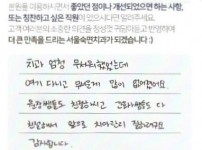 본원을 이용하시면서 좋았던 점이나 개선되었으면 하는 사항,
또는 칭찬하고 싶은 직원이 있으시다면 알려주세요.
고객 여러분의 소중한 의견을 정성껏 귀담아듣고 반영하여
더 큰 만족을 드리는 서울숙면치과가 되겠습니다 :)
치과 엄청 무서워했었는데
여기 다니고 무서운게 많이 없어졌어요
원장쌤들도 친절하시고 간호사쌤들도 다
친절해서 앞으로 치아관리 잘하려구요
감사합니다.